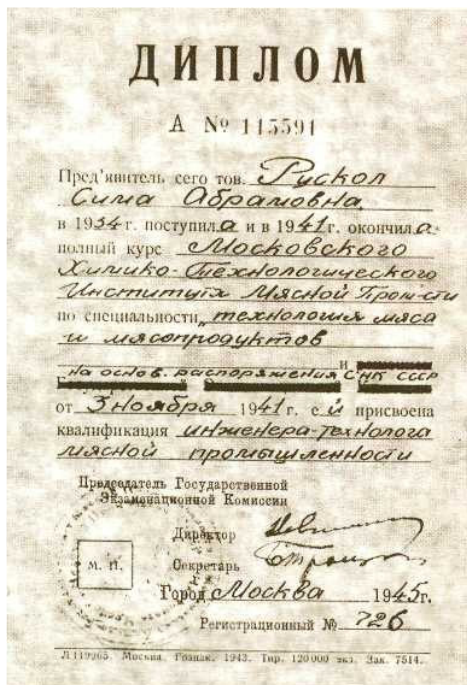 ДИПЛОМ
А № 115591
Пред'явитель сего тов. Рискол
Сима Абрамовна
в 1934 г. поступила и в 1941 г. окончила
полный курс Московского
Химико-Технологического
Института Мясной Пром-сти
по специальности „технология мяса
и мясопродуктов
и
на основ. распоряжения СНК СССР
от 3 ноября 1941 г. ей присвоена
квалификация инженера-технолога
мясной промышленности
Председатель Государственной
Экзаменационной Комиссии
Директор
М. П.
Секретарь
Город Москва 1945 г.
Регистрационный № 726
Л119965. Москва. Гознак. 1943. Тир. 120000 экз. Зак. 7514.